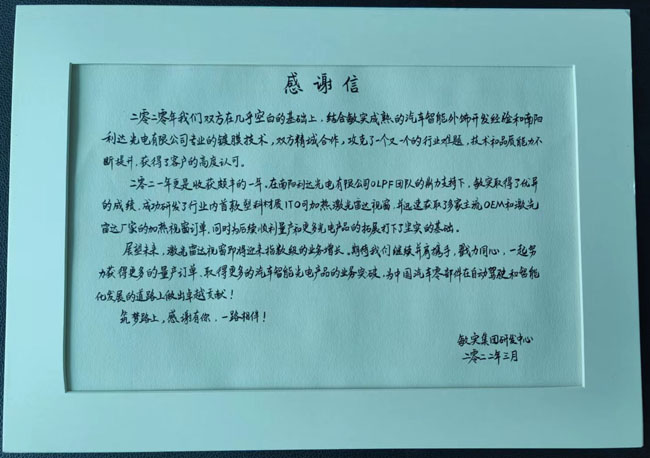 感谢信
二零二零年我们双方在几乎空白的基础上，结合敏实成熟的汽车智能外饰开发经验和南阳
利达光电有限公司专业的镀膜技术，双方精诚合作，攻克了一个又一个的行业难题，技术和品质能力不
断提升，获得了客户的高度认可。
二零二一年更是收获颇丰的一年，在南阳利达光电有限公司OLPF团队的鼎力支持下，敏实取得了优异
的成绩，成功研发了行业内首款塑料材质ITO可加热激光雷达视窗，并迅速获取了多家主流OEM和激光
雷达厂家的加热视窗订单，同时为后续顺利量产和更多光电产品的拓展打下了坚实的基础。
展望未来，激光雷达视窗即将迎来指数级的业务增长。期待我们继续并肩携手，戮力同心，一起努
力获得更多的量产订单、取得更多的汽车智能光电产品的业务突破，为中国汽车零部件在自动驾驶和智能
化发展的道路上做出卓越贡献！
筑梦路上，感谢有你，一路相伴！
敏实集团研发中心
二零二二年三月